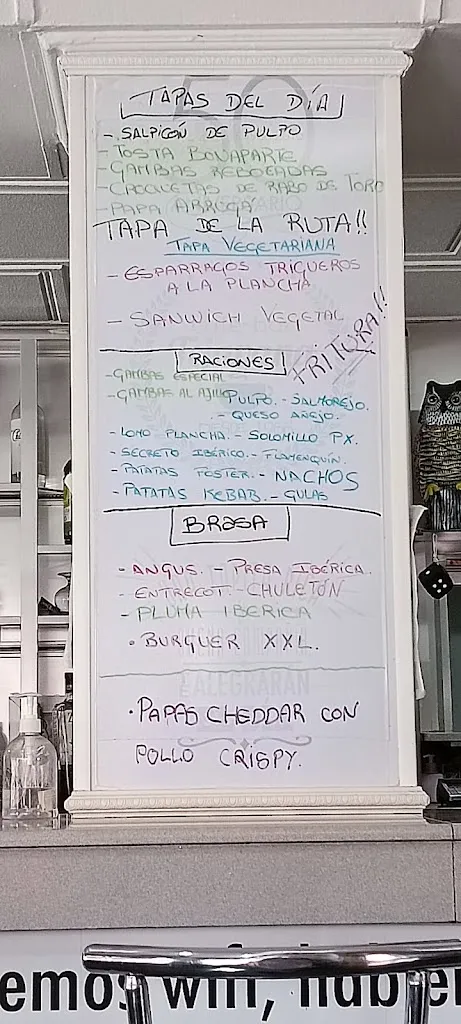 TAPAS DEL DÍA
- SALPICON DE PULPO
- TOSTA BONAPARTE
- GAMBAS REBOZADAS
- CROQUETAS DE RABO DE TORO
- PAPA ARRUGÁ
TAPA DE LA RUTA!!
TAPA VEGETARIANA
- ESPARRAGOS TRIGUEROS
A LA PLANCHA
- SANWICH VEGETAL
FRITURA!!
RACIONES
- GAMBAS ESPECIAL
- GAMBAS AL AJILLO PULPO. - SALMOREJO.
- QUESO AÑEJO.
- LOMO PLANCHA. - SOLOMILLO PX.
- SECRETO IBÉRICO. - FLAMENQUÍN.
- PATATAS POSTER. - NACHOS
- PATATAS KEBAB. - GULAS
BRASA
- ANGUS. - PRESA IBÉRICA.
- ENTRECOT. - CHULETÓN
- PLUMA IBERICA
· BURGUER XXL.
ALEGRARAN
· PAPAS CHEDDAR CON
POLLO CRISPY.
emos wifi,